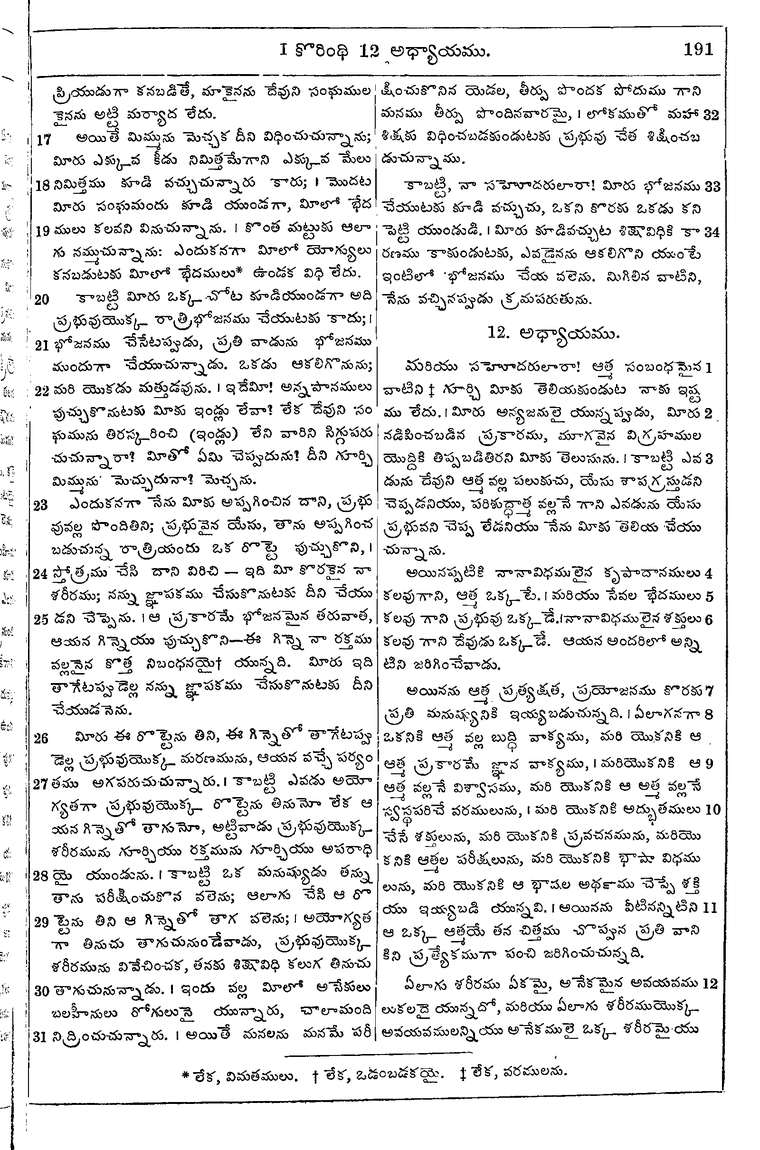 I కొరింథి 12 అధ్యాయము. 191
ప్రియుడుగా కనబడితే, మాకైనను దేవుని సంఘముల
కైనను అట్టి మర్యాద లేదు.
17 అయితే మిమ్మును మెచ్చక దీని విధించుచున్నాను;
మీరు ఎక్కువ కీడు నిమిత్తమేగాని ఎక్కువ మేలు
18 నిమిత్తము కూడి వచ్చుచున్నారు కారు; । మొదట
మీరు సంఘమందు కూడి యుండగా, మీలో భేద
19 ములు కలవని వినుచున్నాను. । కొంత మట్టుకు ఆలా
గు నమ్ముచున్నాను: ఎందుకనగా మీలో యోగ్యులు
కనబడుటకు మీలో భేదములు* ఉండక విధి లేదు.
20 కాబట్టి మీరు ఒక్క చోట కూడియుండగా అది
ప్రభువుయొక్క రాత్రిభోజనము చేయుటకు కాదు; ।
21 భోజనము చేసేటప్పుడు, ప్రతి వాడును భోజనము
ముందుగా చేయుచున్నాడు. ఒకడు ఆకలిగొనును;
22 మరి యొకడు మత్తుడవును. । ఇదేమి! అన్నపానములు
పుచ్చుకొనుటకు మీకు ఇండ్లు లేవా? లేక దేవుని సం
ఘమును తిరస్కరించి (ఇండ్లు) లేని వారిని సిగ్గుపరు
చుచున్నారా? మీతో ఏమి చెప్పుదును? దీని గూర్చి
మిమ్మును మెచ్చుదునా? మెచ్చను.
23 ఎందుకనగా నేను మీకు అప్పగించిన దాని, ప్రభు
వువల్ల పొందితిని; ప్రభువైన యేసు, తాను అప్పగించ
బడుచున్న రాత్రియందు ఒక రొట్టె పుచ్చుకొని, ।
24 స్తోత్రము చేసి దాని విరిచి — ఇది మీ కొరకైన నా
శరీరము; నన్ను జ్ఞాపకము చేసుకొనుటకు దీని చేయు
25 డని చెప్పెను. । ఆ ప్రకారమే భోజనమైన తరువాత,
ఆయన గిన్నెయు పుచ్చుకొని—ఈ గిన్నె నా రక్తము
వల్లనైన కొత్త నిబంధనయై† యున్నది. మీరు ఇది
తాగేటప్పుడెల్ల నన్ను జ్ఞాపకము చేసుకొనుటకు దీని
చేయుడనెను.
26 మీరు ఈ రొట్టెను తిని, ఈ గిన్నెతో తాగేటప్పు
డెల్ల ప్రభువుయొక్క మరణమును, ఆయన వచ్చే పర్యం
27 తము అగపరుచుచున్నారు. । కాబట్టి ఎవడు అయో
గ్యతగా ప్రభువుయొక్క రొట్టెను తినునో లేక ఆ
యన గిన్నెతో తాగునో, అట్టివాడు ప్రభువుయొక్క
శరీరమును గూర్చియు రక్తమును గూర్చియు అపరాధి
28 యై యుండును. । కాబట్టి ఒక మనుష్యుడు తన్ను
తాను పరీక్షించుకొన వలెను; ఆలాగు చేసి ఆ రొ
29 ట్టెను తిని ఆ గిన్నెతో తాగ వలెను; । అయోగ్యత
గా తినుచు తాగుచునుండేవాడు, ప్రభువుయొక్క
శరీరమును వివేచించక, తనకు శిక్షావిధి కలుగ తినుచు
30 తాగుచునున్నాడు. । ఇందు వల్ల మీలో అనేకులు
బలహీనులు రోగులునై యున్నారు, చాలామంది
31 నిద్రించుచున్నారు. । అయితే మనలను మనమే పరీ
క్షించుకొనిన యెడల, తీర్పు పొందక పోదుము గాని
మనము తీర్పు పొందినవారమై, । లోకముతో మహా 32
శిక్షకు విధించబడకుండుటకు ప్రభువు చేత శిక్షించబ
డుచున్నాము.
కాబట్టి, నా సహోదరులారా! మీరు భోజనము 33
చేయుటకు కూడి వచ్చుచు, ఒకని కొరకు ఒకడు కని
పెట్టి యుండుడి. । మీరు కూడివచ్చుట శిక్షావిధికి కా 34
రణము కాకుండుటకు, ఎవడైనను ఆకలిగొని యుంటే
ఇంటిలో భోజనము చేయ వలెను. మిగిలిన వాటిని,
నేను వచ్చినప్పుడు క్రమపరుతును.
12. అధ్యాయము.
మరియు సహోదరులారా! ఆత్మ సంబంధమైన 1
వాటిని‡ గూర్చి మీకు తెలియకుండుట నాకు ఇష్ట
ము లేదు. । మీరు అన్యజనులై యున్నప్పుడు, మీరు 2
నడిపించబడిన ప్రకారము, మూగవైన విగ్రహముల
యొద్దికి తిప్పబడితిరని మీకు తెలుసును. । కాబట్టి ఎవ 3
డును దేవుని ఆత్మ వల్ల పలుకుచు, యేసు శాపగ్రస్తుడని
చెప్పడనియు, పరిశుద్ధాత్మ వల్లనే గాని ఎవడును యేసు
ప్రభువని చెప్ప లేడనియు నేను మీకు తెలియ చేయు
చున్నాను.
అయినప్పటికి నానావిధములైన కృపాదానములు 4
కలవుగాని, ఆత్మ ఒక్కటే. । మరియు సేవల భేదములు 5
కలవు గాని ప్రభువు ఒక్కడే. । నానావిధములైన శక్తులు 6
కలవు గాని దేవుడు ఒక్కడే. ఆయన అందరిలో అన్ని
టిని జరిగించేవాడు.
అయినను ఆత్మ ప్రత్యక్షత, ప్రయోజనము కొరకు 7
ప్రతి మనుష్యునికి ఇయ్యబడుచున్నది. । ఏలాగనగా 8
ఒకనికి ఆత్మ వల్ల బుద్ధి వాక్యము, మరి యొకనికి ఆ
ఆత్మ ప్రకారమే జ్ఞాన వాక్యము, । మరియొకనికి ఆ 9
ఆత్మ వల్లనే విశ్వాసము, మరి యొకనికి ఆ అత్మ వల్లనే
స్వస్థపరిచే వరములును, । మరి యొకనికి అద్భుతములు 10
చేసే శక్తులును, మరి యొకనికి ప్రవచనమును, మరియొ
కనికి ఆత్మల పరీక్షలును, మరి యొకనికి భాషా విధము
లును, మరి యొకనికి ఆ భాషల అర్థము చెప్పే శక్తి
యు ఇయ్యబడి యున్నవి. । అయినను వీటినన్నిటిని 11
ఆ ఒక్క ఆత్మయే తన చిత్తము చొప్పున ప్రతి వాని
కిని ప్రత్యేకముగా పంచి జరిగించుచున్నది.
ఏలాగు శరీరము ఏకమై, అనేకమైన అవయవము 12
లుకలదై యున్నదో, మరియు ఏలాగు శరీరముయొక్క
అవయవములన్నియు అనేకములై ఒక్క శరీరమై యు
* లేక, విమతములు. † లేక, ఒడంబడకయై. ‡ లేక, వరములను.